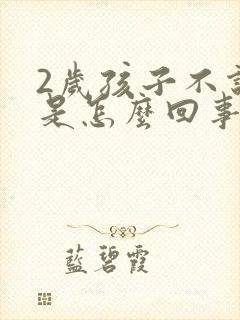 2歲孩子不
是怎麼回事
藍碧霞